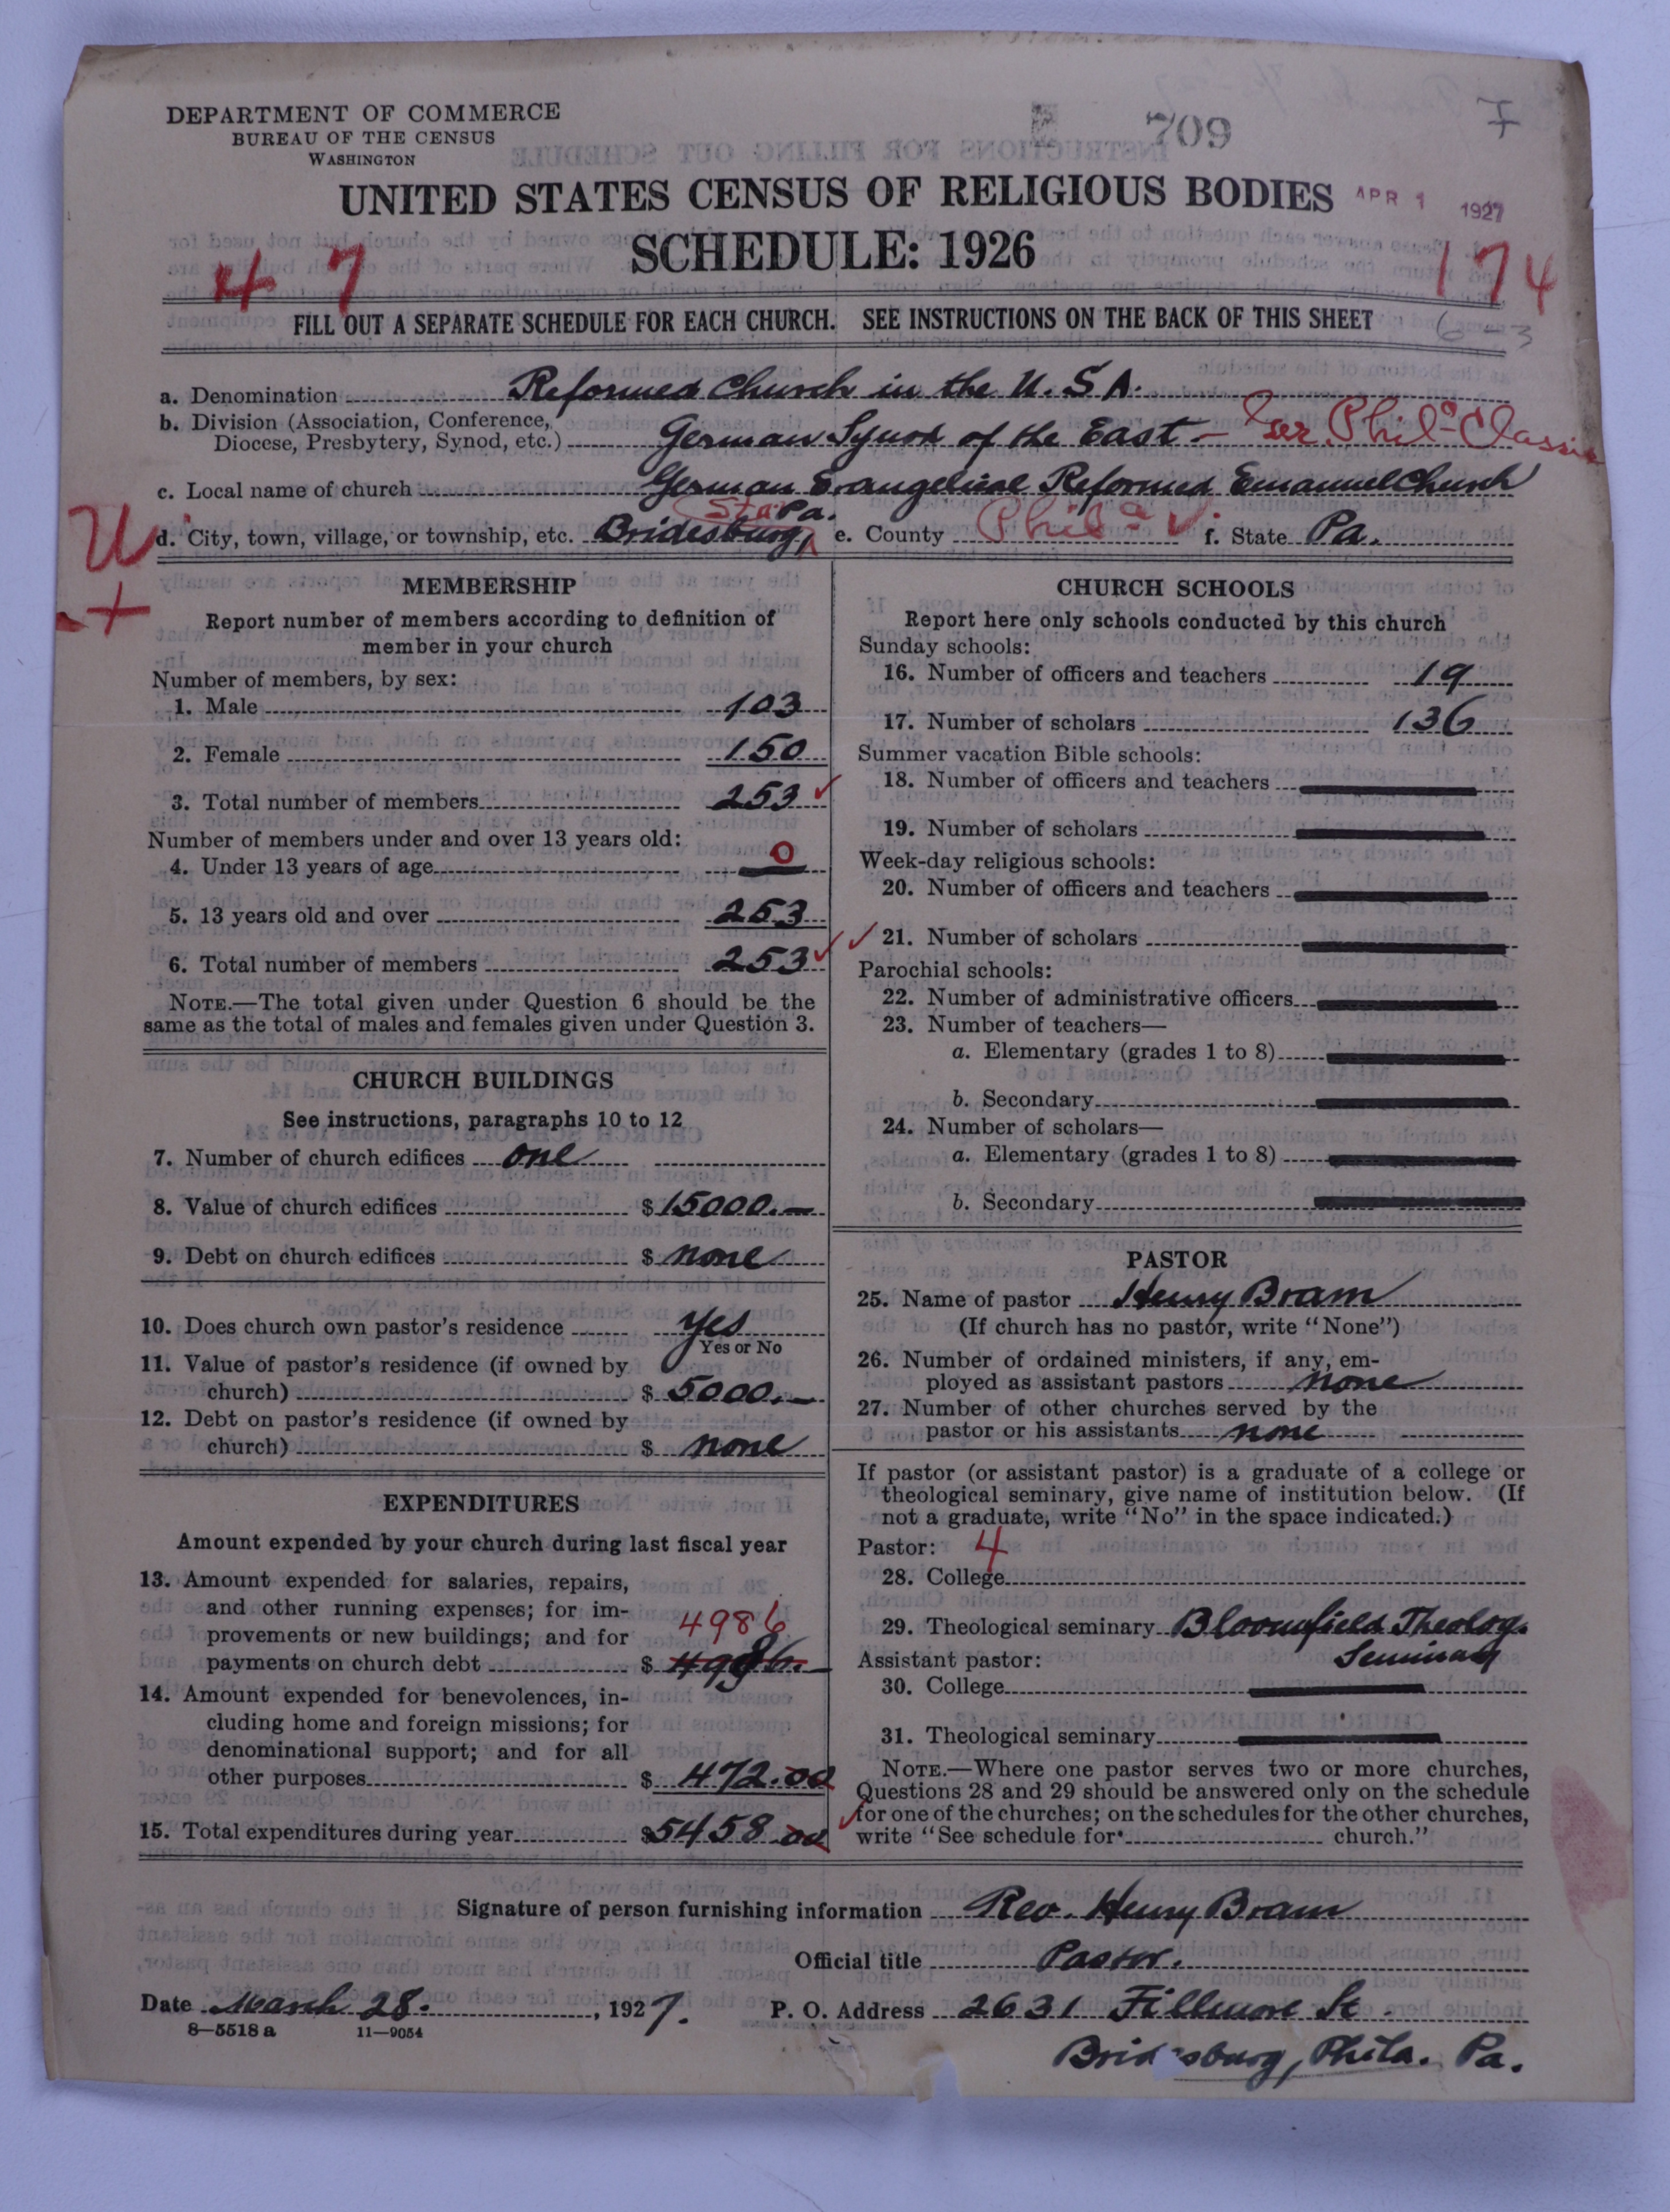 DEPARTMENT OF COMMERCE
BUREAU OF THE CENSUS
WASHINGTON
709
7
UNITED STATES CENSUS OF RELIGIOUS BODIES
APR 1 1927
SCHEDULE: 1926
4 7
174
FILL OUT A SEPARATE SCHEDULE FOR EACH CHURCH. SEE INSTRUCTIONS ON THE BACK OF THIS SHEET
6-3
a. Denomination Reformed Church in the U.S.A.
b. Division (Association, Conference,
Diocese, Presbytery, Synod, etc.) German Synod of the East - Ger. Phila Classis
c. Local name of church German Evangelical Reformed Emanuel Church
Sta. Pa.
d. City, town, village, or township, etc. Bridesburg, e. County Phila f. State Pa.
U
+
MEMBERSHIP
Report number of members according to definition of
member in your church
Number of members, by sex:
1. Male 103
2. Female 150
3. Total number of members 253
Number of members under and over 13 years old:
4. Under 13 years of age 0
5. 13 years old and over 253
6. Total number of members 253
NOTE.—The total given under Question 6 should be the
same as the total of males and females given under Question 3.
CHURCH BUILDINGS
See instructions, paragraphs 10 to 12
7. Number of church edifices one
8. Value of church edifices $ 15000.—
9. Debt on church edifices $ none
10. Does church own pastor's residence yes
Yes or No
11. Value of pastor's residence (if owned by
church) $ 5000.—
12. Debt on pastor's residence (if owned by
church) $ none
EXPENDITURES
Amount expended by your church during last fiscal year
13. Amount expended for salaries, repairs,
and other running expenses; for im-
provements or new buildings; and for 4986
payments on church debt $ 4986.—
14. Amount expended for benevolences, in-
cluding home and foreign missions; for
denominational support; and for all
other purposes $ 472.00
15. Total expenditures during year $5458 00
CHURCH SCHOOLS
Report here only schools conducted by this church
Sunday schools:
16. Number of officers and teachers 19
17. Number of scholars 136
Summer vacation Bible schools:
18. Number of officers and teachers
19. Number of scholars
Week-day religious schools:
20. Number of officers and teachers
21. Number of scholars
Parochial schools:
22. Number of administrative officers
23. Number of teachers—
a. Elementary (grades 1 to 8)
b. Secondary
24. Number of scholars—
a. Elementary (grades 1 to 8)
b. Secondary
PASTOR
25. Name of pastor Henry Bram
(If church has no pastor, write "None")
26. Number of ordained ministers, if any, em-
ployed as assistant pastors none
27. Number of other churches served by the
pastor or his assistants none
If pastor (or assistant pastor) is a graduate of a college or
theological seminary, give name of institution below. (If
not a graduate, write "No" in the space indicated.)
Pastor: 4
28. College
29. Theological seminary Bloomfield Theolog.
Assistant pastor: Seminary
30. College
31. Theological seminary
NOTE.—Where one pastor serves two or more churches,
Questions 28 and 29 should be answered only on the schedule
for one of the churches; on the schedules for the other churches,
write "See schedule for church."
Signature of person furnishing information Rev. Henry Bram
Official title Pastor.
Date March 28. , 1927. P. O. Address 2631 Fillmore St.
8—5518 a 11—9054
Bridesburg, Phila. Pa.